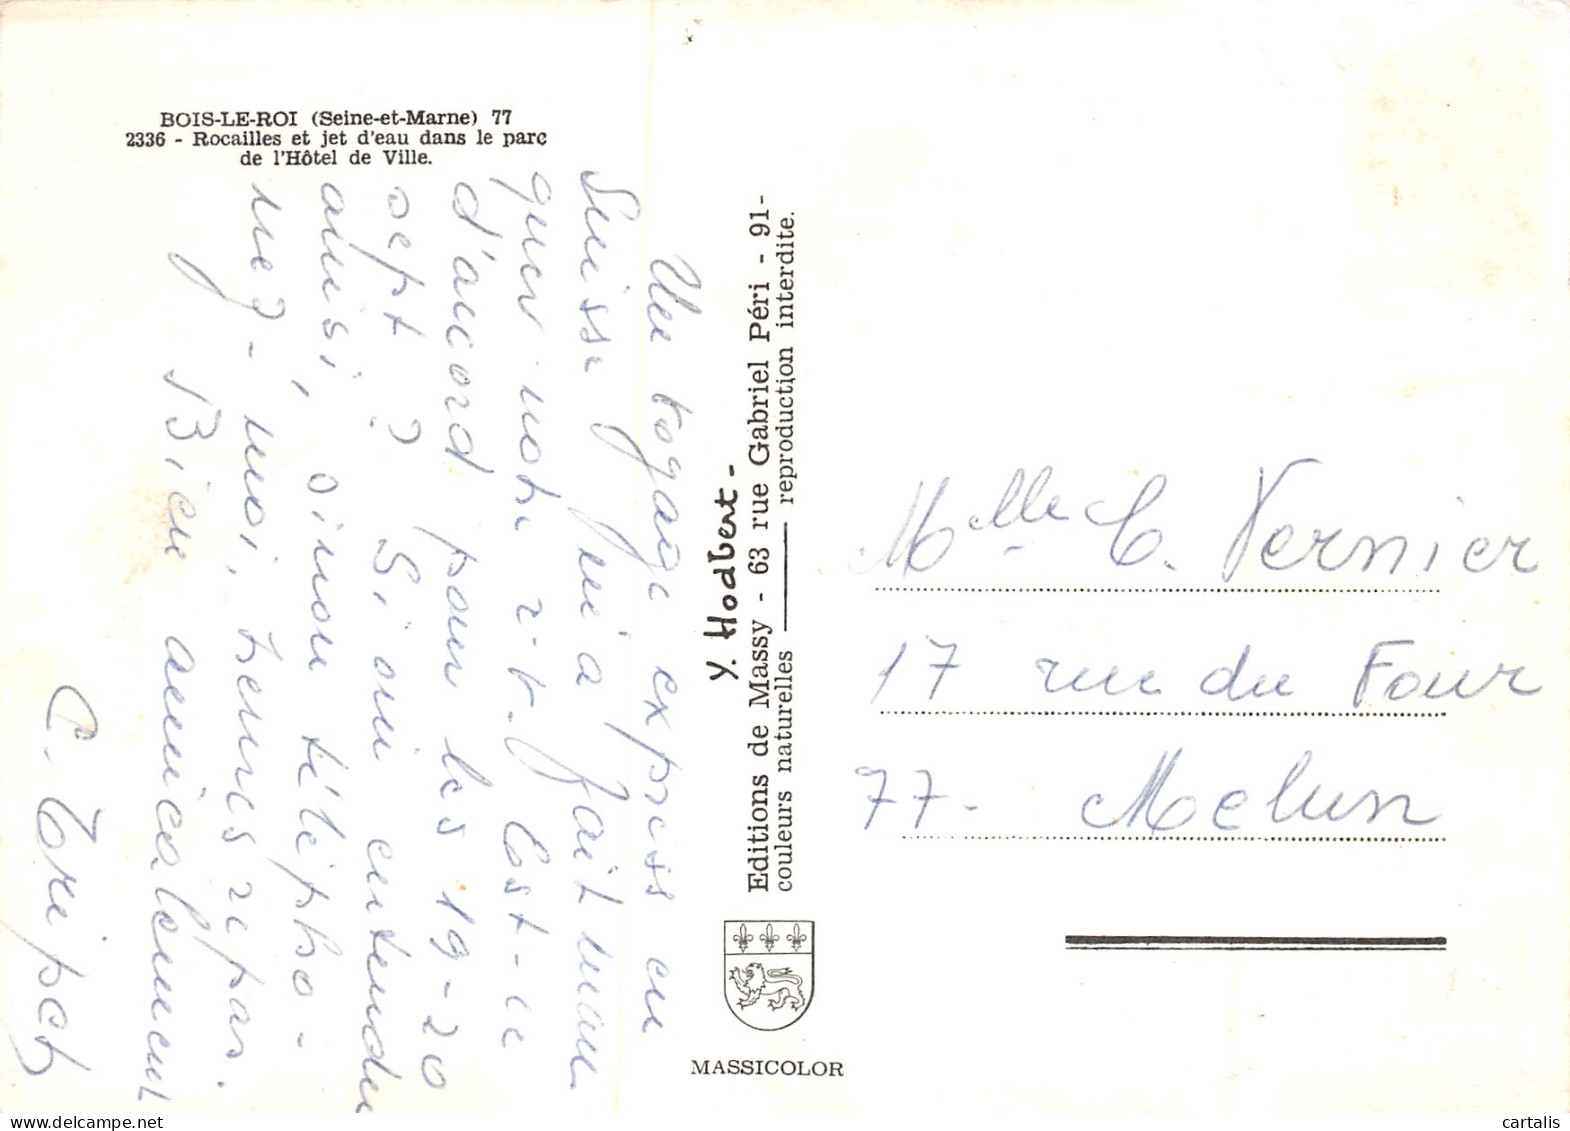 BOIS-LE-ROI (Seine-et-Marne) 77
2336 - Rocailles et jet d'eau dans le parc
de l'Hôtel de Ville.
Un voyage express en
Suisse m'a fait man
quer notre r.v. Est-ce
d'accord pour les 19-20
sept ? Si oui entendu
ainsi, sinon télépho-
nez-moi, heures repas.
Bien amicalement
C. Toripet
Y. Hodbert -
Editions de Massy - 63 rue Gabriel Péri - 91-
couleurs naturelles reproduction interdite.
MASSICOLOR
Mlle C. Vernier
17 rue du Four
77- Melun
cartalis